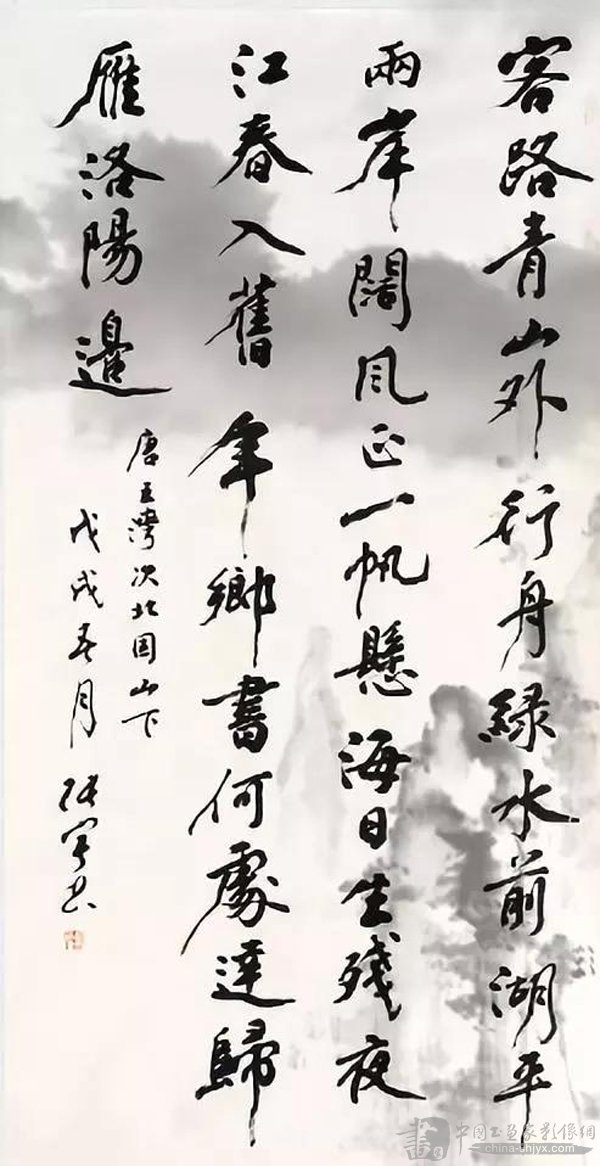 客路青山外行舟綠水前湖平
兩岸闊風正一帆懸海日生殘夜
江春入舊年鄉書何處達歸
雁洛陽邊
唐王灣次北固山下
戊戌春月
中國书画家影像網
china-shjyx.com